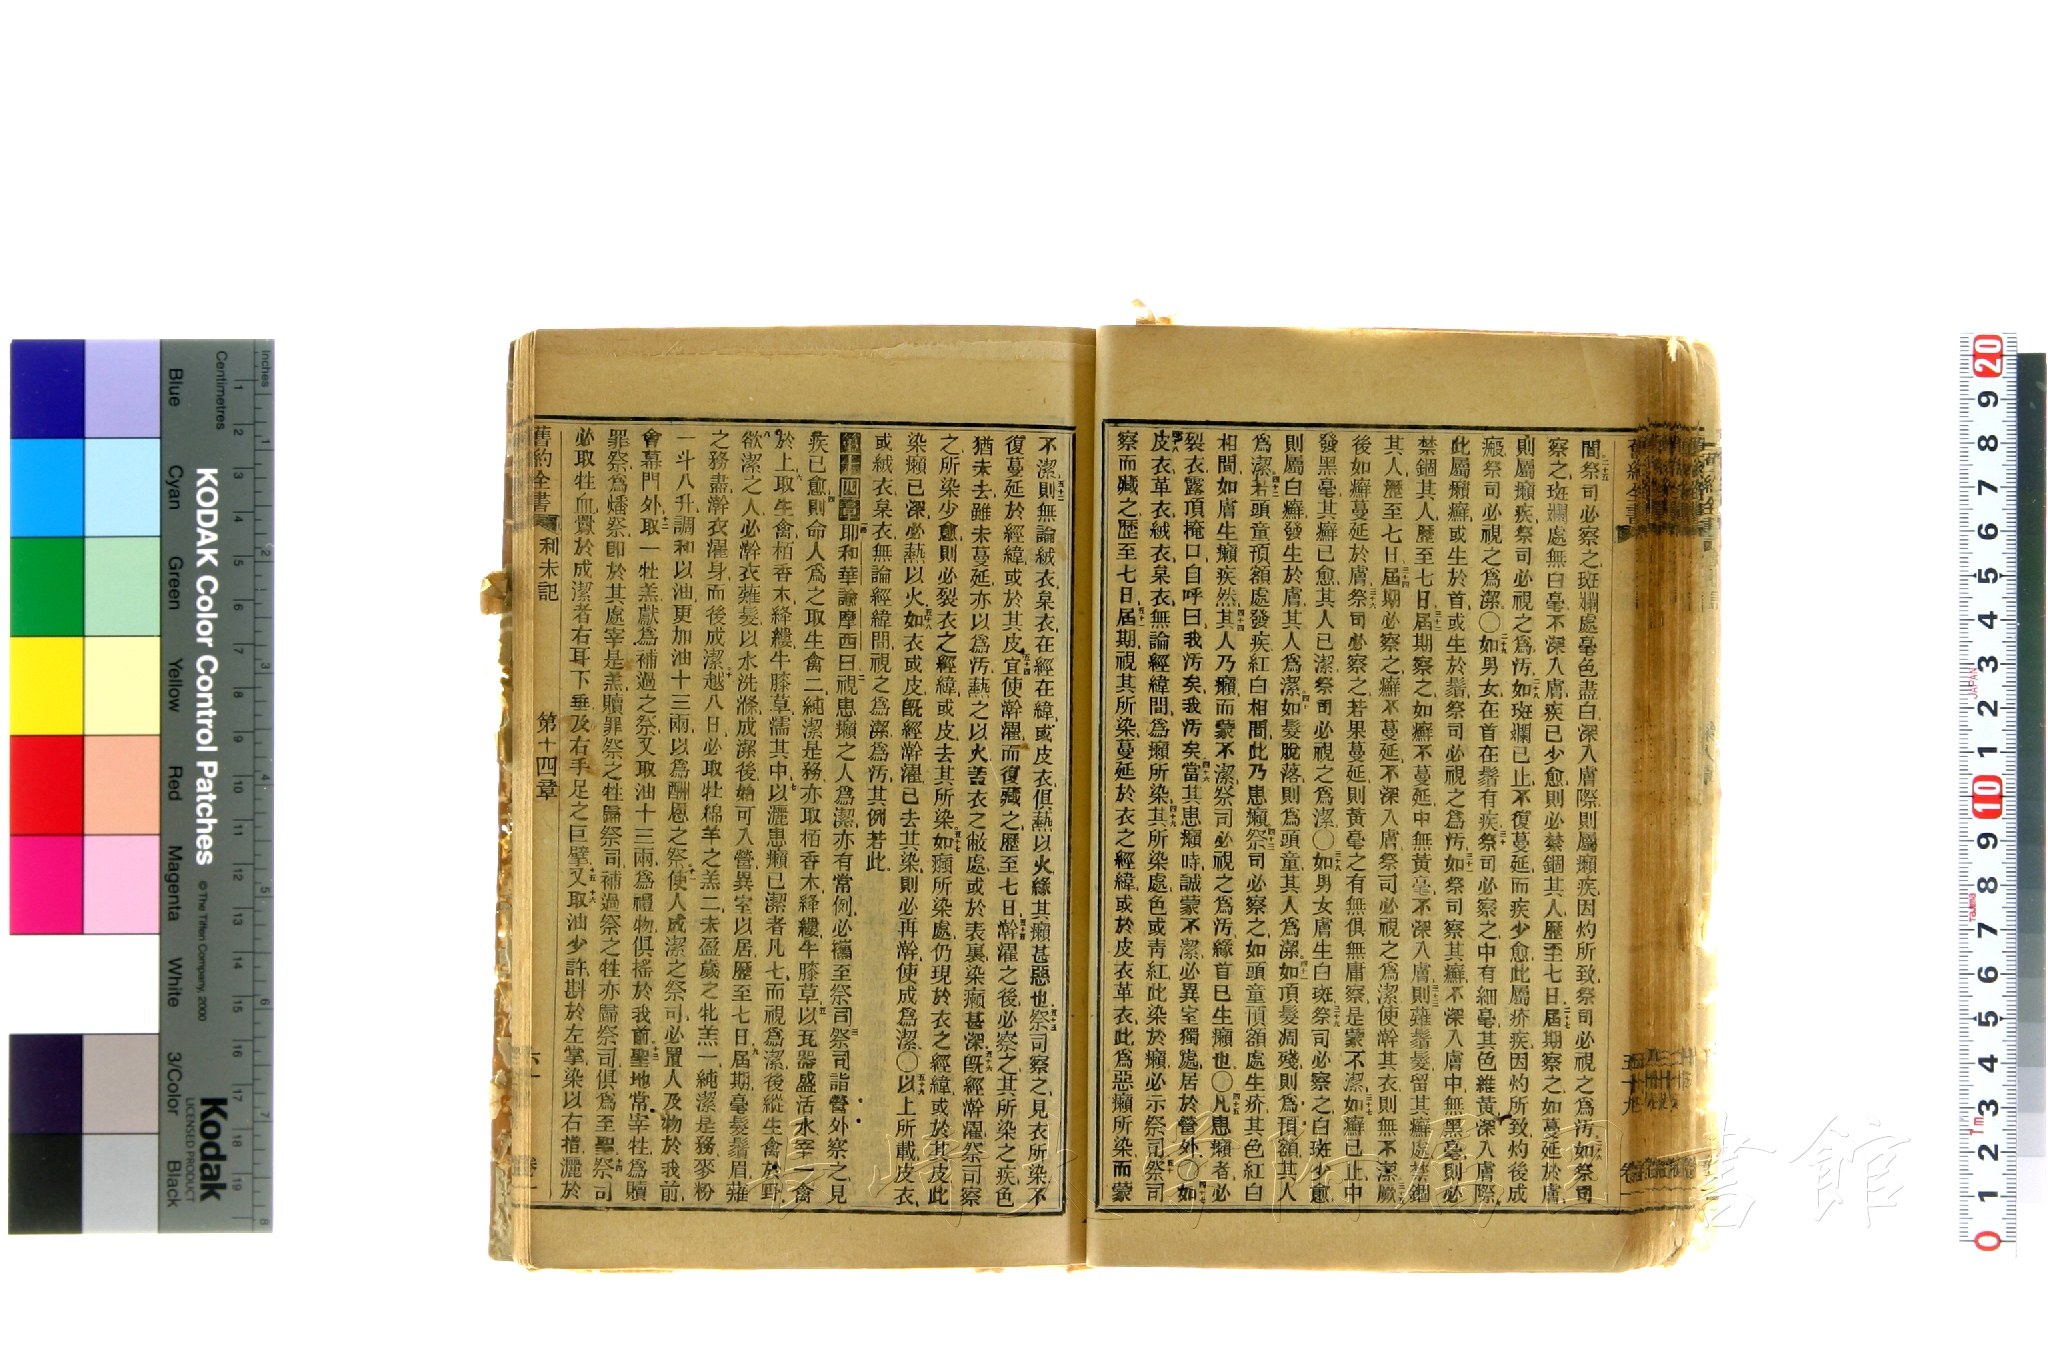 間祭司必察之斑斕處毫色盡白深入膚際則屬癩疾因灼所致祭司必視之爲汚如祭司
察之斑斕處無白毫不深入膚疾已少愈則必禁錮其人歷至七日屆期察之如蔓延於膚
則屬癩疾祭司必視之爲汚如斑斕已止不復蔓延而疾少愈此屬疥疾因灼所致灼後成
瘢祭司必視之爲潔〇如男女在首在鬚有疾祭司必察之中有細毫其色維黃深入膚際
此屬癩癬或生於首或生於鬚祭司必視之爲汚如祭司察其癬不深入膚中無黑毫則必
禁錮其人歷至七日屆期察之如癬不蔓延中無黃毫不深入膚則薙鬚髮留其癬處禁錮
其人歷至七日屆期必察之癬不蔓延不深入膚祭司必視之爲潔使澣其衣則無不潔厥
後如癬蔓延於膚祭司必察之若果蔓延則黃毫之有無俱無庸察是蒙不潔如癬已止中
發黑毫其癬已愈其人已潔祭司必視之爲潔〇如男女膚生白斑祭司必察之白斑少愈
則屬白癬發生於膚其人爲潔如髮脫落則爲頭童其人爲潔如頂髮凋殘則爲頂額其人
爲潔若頭童頂額處發疾紅白相間此乃患癩祭司必察之如頭童頂額處生疥其色紅白
相間如膚生癩疾然其人乃癩而蒙不潔祭司必視之爲汚緣首已生癩也〇凡患癩者必
裂衣露頂掩口自呼曰我汚矣我汚矣當其患癩時誠蒙不潔必異室獨處居於營外〇如
皮衣革衣絨衣枲衣無論經緯間爲癩所染其所染處色或靑紅此染於癩必示祭司祭司
察而藏之歷至七日屆期視其所染蔓延於衣之經緯或於皮衣革衣此爲惡癩所染而蒙
不潔則無論絨衣枲衣在經在緯或皮衣俱爇以火緣其癩甚惡也祭司察之見衣所染不
復蔓延於經緯或於其皮宜使澣濯而復藏之歷至七日澣濯之後必察之其所染之疾色
猶未去雖未蔓延亦以爲汚爇之以火蓋衣之敝處或於表裏染癩甚深旣經澣濯祭司察
之所染少愈則必裂衣之經緯或皮去其所染如癩所染處仍現於衣之經緯或於其皮此
染癩已深必爇以火如衣或皮旣經澣濯已去其染則必再澣使成爲潔〇以上所載皮衣
或絨衣枲衣無論經緯間視之爲潔爲汚其例若此
第十四章耶和華諭摩西曰視患癩之人爲潔亦有常例必攜至祭司祭司詣營外察之見
疾已愈則命人爲之取生禽二純潔是務亦取栢香木絳縷牛膝草以瓦器盛活水宰一禽
於上取生禽栢香木絳縷牛膝草濡其中以灑患癩已潔者凡七而視爲潔後縱生禽於野
欲潔之人必澣衣薙髮以水洗滌成潔後始可入營異室以居歷至七日屆期毫髮鬚眉薙
之務盡澣衣濯身而後成潔越八日必取牡綿羊之羔二未盈歲之牝羔一純潔是務麥粉
一斗八升調和以油更加油十三兩以爲酬恩之祭使人成潔之祭司必置人及物於我前
會幕門外取一牡羔獻爲補過之祭又取油十三兩爲禮物俱搖於我前聖地常宰牲爲贖
罪祭爲燔祭卽於其處宰是羔贖罪祭之牲歸祭司補過祭之牲亦歸祭司俱爲至聖祭司
必取牲血釁於成潔者右耳下垂及右手足之巨擘又取油少許斟於左掌染以右指灑於
舊約全書 利未記 第十四章 六十 卷一
五十九
長崎大學附屬圖書館
KODAK Color Control Patches
© The Tiffen Company, 2000
Kodak
LICENSED PRODUCT
Inches
Centimetres
Blue Cyan Green Yellow Red Magenta White 3/Color Black
JAPAN